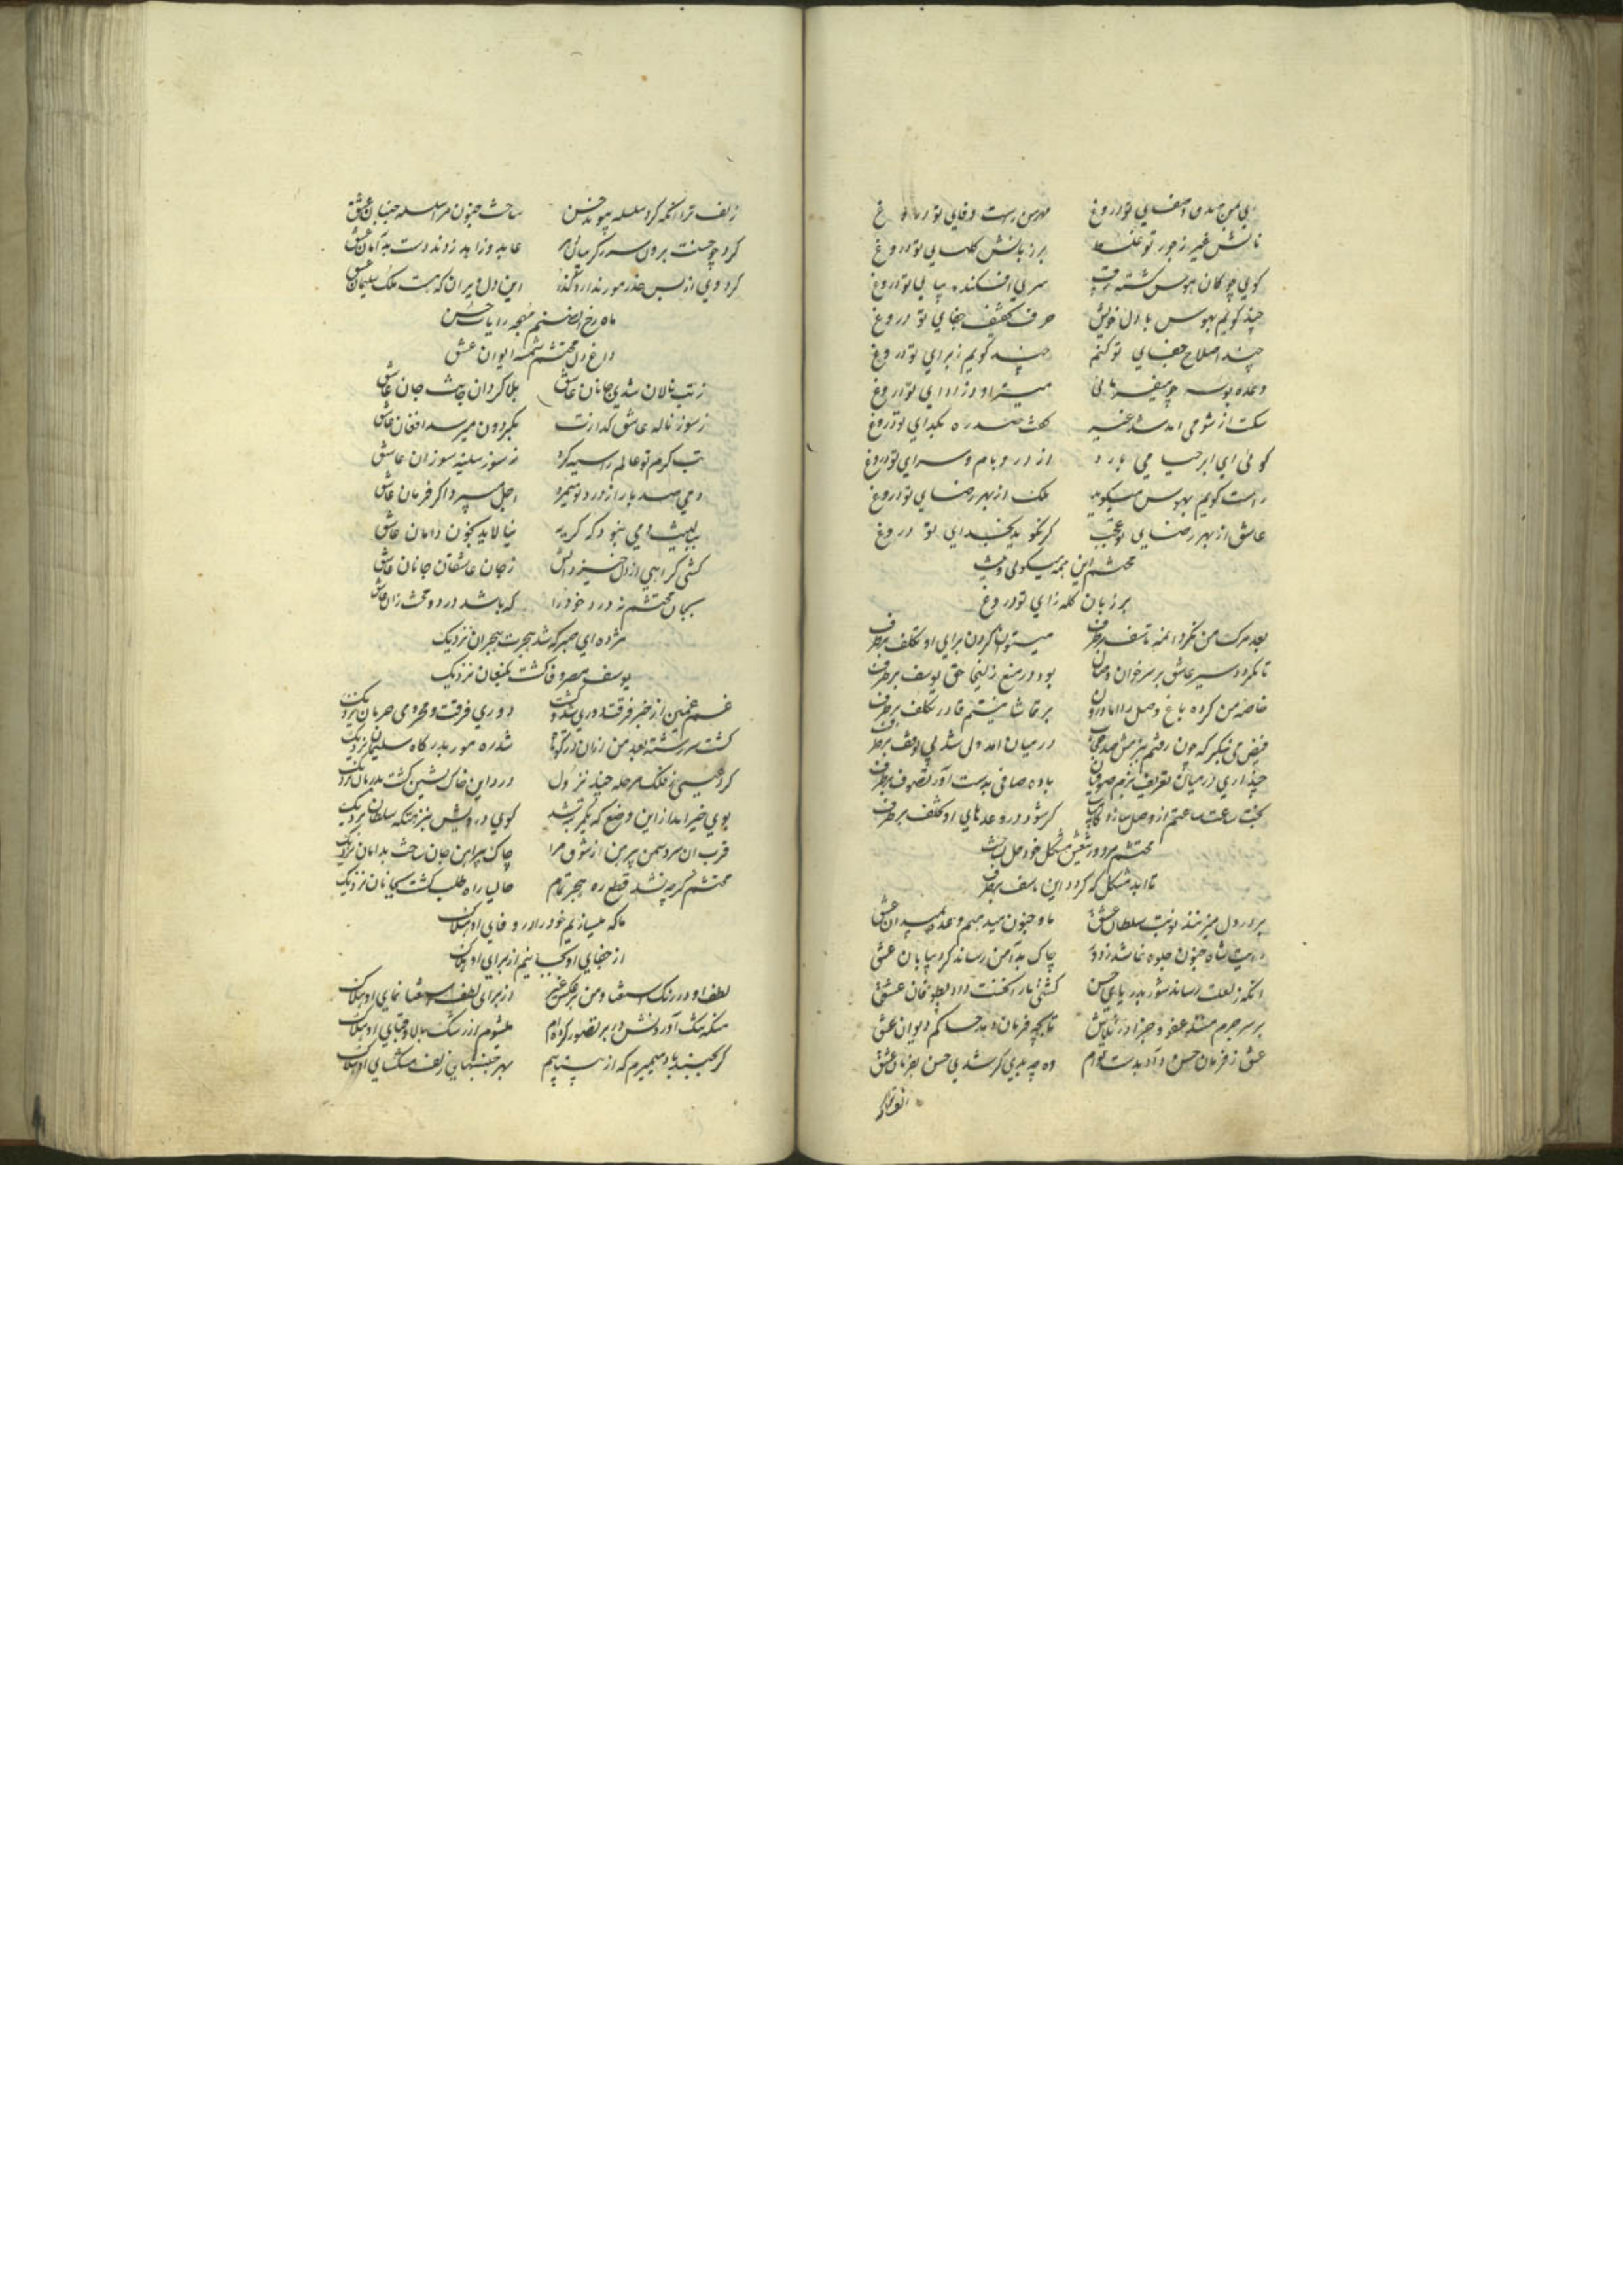 بی من صدق و صفای تو دروغ مهر من راست وفای تو دروغ
نالش غیر ز جور تو غلط بر زبانش گلهای تو دروغ
گوی چوگان هوس گشته رقیب سری افکنده بپای تو دروغ
چند گویم بهوس با دل خویش حرف تخفیف جفای تو دروغ
چند اصلاح جفای تو کنم چند گویم ز برای تو دروغ
وعده بوسه چه میفرمائی میتراود ز ادای تو دروغ
گفت صد ره بگدای تو دروغ
گوئی ای ابر حیا می بارد از در و بام و سرای تو دروغ
راست گویم بهوس میگوید ملک از بهر رضای تو دروغ
عاشق از بهر رضای تو عجب گر نگوید بخدای تو دروغ
محتشم این همه میگوئی و نیست
بر زبان گله زای تو دروغ
بعد مرگ من نکرد آن مه تاسف برطرف میتوان کردن برای او تکلف برطرف
تا نگردد سیر عاشق بر سر خوان وصال بود در منع زلیخا حق یوسف برطرف
خاصه من کرده باغ وصل را اما در او بر تماشا نیستم قادر تکلف برطرف
فیض می بنگر که چون رفتم ببزمش صد حجاب در میان آمد ولی شد بی توقف برطرف
چند آری در میان تعریف بزم صوفیان باده صافی بدست آور تصوف برطرف
بخت ساعت ساعتم از وصل سازد کامیاب گر شود در وعدهای او تخلف برطرف
محتشم مرد و ز تیغش مشکل خود حل نساخت
تا ابد مشکل که گردد این تاسف برطرف
بر در دل میزنند نوبت سلطان عشق ما و جنون میدهیم وعده بمیدان عشق
رایت شاه جنون جلوه نما شد ز دور چاک بدامن رساند گرد بیابان عشق
آنکه ز لعلت رساند شور بدریای حسن کشتی ما را فکند داد بطوفان عشق
بر سر جرم منند عفو و جزا در تلاش تا بچه فرمان دهد حاکم دیوان عشق
عشق ز فرمان حسن داد بدست توام وه چه بدی گر شدی حسن بفرمان عشق
زلف ترا آنکه کرد سلسله پیوند حسن ساخت جنون مرا سلسله جنبان عشق
کرد چو حسنت برون سر ز گریبان ناز عابد و زاهد زدند دست بدامان عشق
کرد وی از بس حذر مور ندارد گذر این دل ویران که هست ملک سلیمان عشق
ماه رخ آن صنم مهجه رایات حسن
داغ دل محتشم شمسه ایوان عشق
ز تب نالان شدی جانان عاشق بلا گردان جانت جان عاشق
ز سوز ناله عاشق گدازت بگردون میرسد افغان عاشق
تب گرم تو عالم را سیه کرد ز سوز سینه سوزان عاشق
دمی صد بار از درد تو میمرد اجل میبرد اگر فرمان عاشق
نیالاید بخون دامان عاشق
کشی گر آهی از دل خیزد آتش ز جان عاشقان جانان عاشق
بجان محتشم نه درد خود را که باشد درد و محنت زان عاشق
مژده ای صبر که شد هجرت هجران نزدیک
یوسف مصر وفا گشت بکنعان نزدیک
غم غمین از خبر فرقت دوری شد و گشت دوری فرقت و محرومی حرمان نزدیک
گشت سررشته بعد من و زان در کوتاه شد ره مور بدرگاه سلیمان نزدیک
کرد عیسی ز فلک مرحله چند نزول درد این خاک نشین گشت بدرمان نزدیک
بوی خیر آمد از این وضع که یکمرتبه شد کوی درویش بنزهتگه سلطان نزدیک
قرب آن سرو سمن پیرهن از شوق مرا چاک پیراهن جان ساخت بدامان نزدیک
محتشم گرچه نشد قطع ره هجر تمام حالیا راه طلب گشت بجانان نزدیک
ما که میسازیم خود را در وفای او هلاک
از جفای او کجا نیم از برای او هلاک
لطف او در رنگ استغنا و من بر عکس غیر از برای لطف استغنا نمای او هلاک
منکه تنگ آوردنش در بر تصور کرده‌ام میشوم از رشک بالا و قبای او هلاک
گر بجنبد باد میمیرم که از بیتابیم بهر جنبشهای زلف مشکسای او هلاک